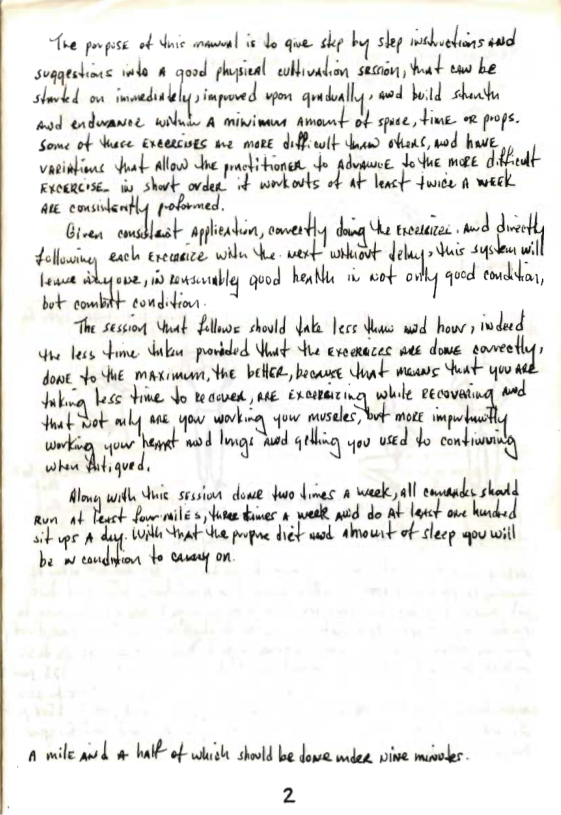 The porpose of this manual is to give step by step instructions and
suggestions into a good physical cultivation session, that can be
started on immediately, improved upon gradually, and build strenth
and endurance within a minimum amount of space, time or props.
Some of these excersises are more difficult than others, and have
variations that allow the practitioner to advance to the more difficult
excercise in short order if workouts of at least twice a week
are consistently proformed.
Given consistent application, correctly doing the excersizes. and directly
following each excersize with the next without delay, this system will
leave anyone, in reasonably good health in not only good condition,
but combat condition.
The session that follows should take less than and hour, indeed
the less time taken provided that the excersizes are done correctly,
done to the maximum, the better, because that means that you are
taking less time to recover, are excersizing while recovering and
that not only are you working your muscles, but more importantly
working your heart and lungs and getting you used to continuing
when fatiqued.
Along with this session done two times a week, all comrades should
run at least four miles, three times a week and do at least one hundred
sit ups a day. With that the propre diet and amount of sleep you will
be in condition to carry on.
A mile and a half of which should be done under nine minutes.
2